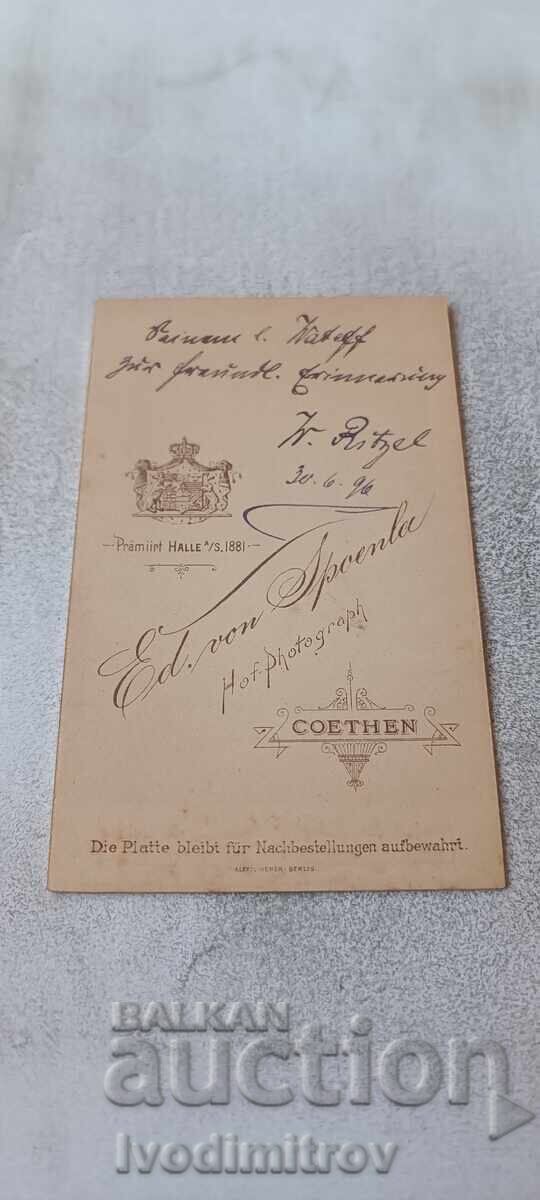 Seinem l. Wateff
zur freundl. Erinnerung
W. Ritzel
30.6.96
Prämiirt HALLE A/S. 1881
Ed. von Spoenla
Hof-Photograph
COETHEN
Die Platte bleibt für Nachbestellungen aufbewahrt.
BERLIN
BALKAN
auction
Ivodimitrov